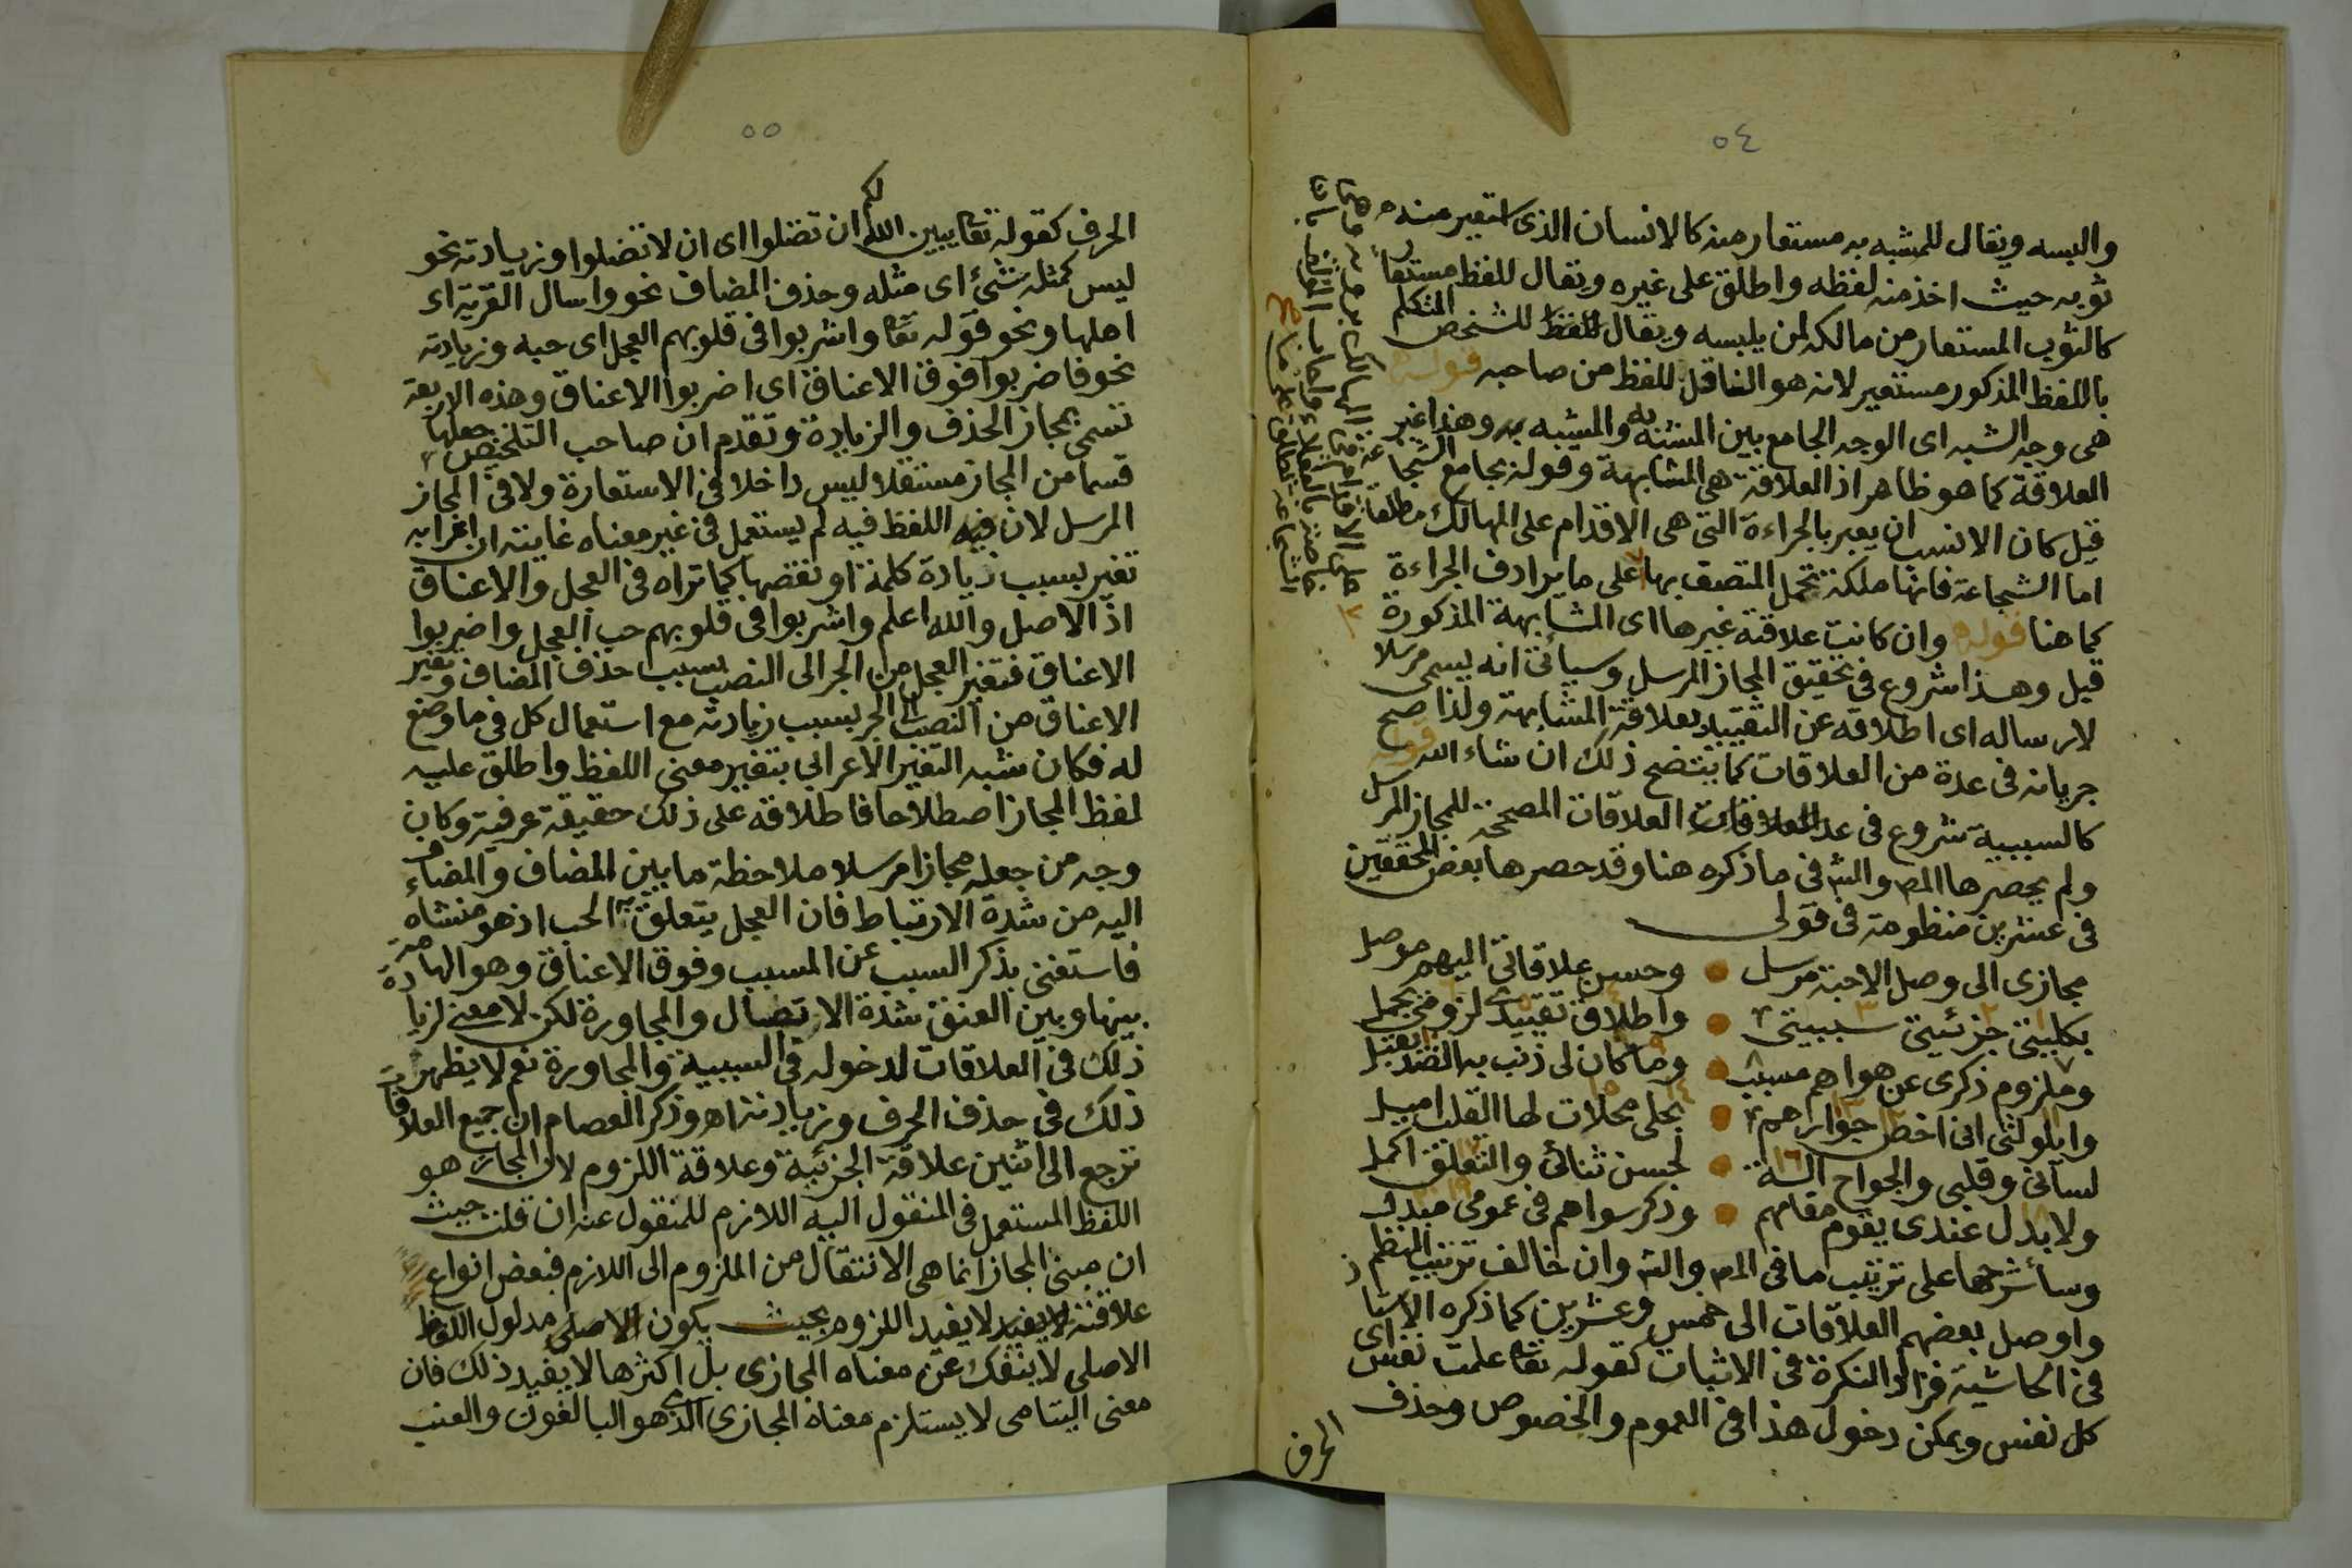 ٥٤
والبسه ويقال للمشبه به مستعار منه كالانسان الذى استعير منه
ثوبه حيث اخذ منه لفظه واطلق على غيره ويقال للفظ مستعار
كالثوب المستعار من مالكه لمن يلبسه ويقال للفظ للشخص المتكلم
باللفظ المذكور مستعير لانه هو الناقل للفظ من صاحبه قوله
هى وجه الشبه اى الوجه الجامع بين المشبه به والمشبه به وهذا غير
العلاقة كما هو ظاهر اذ العلاقة هى المشابهة وقوله بجامع الشجاعة
قيل كان الانسب ان يعبر بالجراءة التى هى الاقدام على المهالك مطلقا
اما الشجاعة فانها ملكة تحمل المتصف بها على ما يرادف الجراءة
كما هنا قوله وان كانت علاقته غيرها اى المشابهة المذكورة
قيل وهذا شروع فى تحقيق المجاز المرسل وسيأتى انه يسمى مرسلا
لارساله اى اطلاقه عن التقييد بعلاقة المشابهة ولذا صح
جريانه فى عدة من العلاقات كما يتضح ذلك ان شاء الله قوله
كالسببية شروع فى عد العلاقات العلاقات المصححة للمجاز المرسل
ولم يحصرها المص والش فى ما ذكره هنا وقد حصرها بعض المحققين
فى عشرين منظومة فى قولى
مجازى الى وصل الاحبة مرسل وحسن علاقاتى اليهم موصل
بكليتى جزئيتى سببيتى واطلاق تقييد لزومى يجمل
وملزوم ذكرى عن هواهم مسبب وما كان لى ذنب به الضد يقبل
وايلولتى انى اخص جوارهم بحلى محلات لها القلب اميل
لسانى وقلبى والجوارح الة لحسن ثنائى والتعلق اكمل
ولا بدل عندى يقوم مقامهم وذكر سواهم فى عمومى مبدل
وسأشرحها على ترتيب ما فى المص والش وان خالف ترتيب النظم
واوصل بعضهم العلاقات الى خمس وعشرين كما ذكره الاستاذ
فى الحاشية فزاد النكرة فى الاثبات كقوله تعا علمت نفس اى
كل نفس ويمكن دخول هذا فى العموم والخصوص وحذف
الحرف
٥٥
الحرف كقوله تعا يبين الله لكم ان تضلوا اى ان لا تضلوا وزيادته نحو
ليس كمثله شئ اى مثله وحذف المضاف نحو واسال القرية اى
اهلها ونحو قوله تعا واشربوا فى قلوبهم العجل اى حبه وزيادته
نحو فاضربوا فوق الاعناق اى اضربوا الاعناق وهذه الاربعة
تسمى بمجاز الحذف والزيادة وتقدم ان صاحب التلخيص جعلها
قسما من المجاز مستقلا ليس داخلا فى الاستعارة ولا فى المجاز
المرسل لان فيه اللفظ فيه لم يستعمل فى غير معناه غايته ان اعرابه
تغير بسبب زيادة كلمة او نقصها كما تراه فى العجل والاعناق
اذ الاصل والله اعلم واشربوا فى قلوبهم حب العجل واضربوا
الاعناق فتغير العجل من الجر الى النصب بسبب حذف المضاف وتغير
الاعناق من النصب الى الجر بسبب زيادته مع استعمال كل فى ما وضع
له فكان شبه التغير الاعرابى بتغير معنى اللفظ واطلق عليه
لفظ المجاز اصطلاحا فاطلاقه على ذلك حقيقة عرفية وكان
وجه من جعله مجازا مرسلا ملاحظة ما بين المضاف والمضاف
اليه من شدة الارتباط فان العجل يتعلق به الحب اذ هو منشاه
فاستغنى بذكر السبب عن المسبب وفوق الاعناق وهو الهامة
بينها وبين العنق شدة الاتصال والمجاورة لكن لا معنى لزيادة
ذلك فى العلاقات لدخوله فى السببية والمجاورة نعم لا يظهر
ذلك فى حذف الحرف وزيادته اه وذكر العصام ان جميع العلاقات
ترجع الى اثنين علاقة الجزئية وعلاقة اللزوم لان المجاز هو
اللفظ المستعمل فى المنقول اليه اللازم للمنقول عنه ان قلت حيث
ان مبنى المجاز انما هى الانتقال من الملزوم الى اللازم فبعض انواع
علاقته لا يفيد لا يفيد اللزوم بحيث يكون الاصلى مدلول اللفظ
الاصلى لا ينفك عن معناه المجازى بل اكثرها لا يفيد ذلك فان
معنى اليتامى لا يستلزم معناه المجازى الذى هو البالغون والعنب